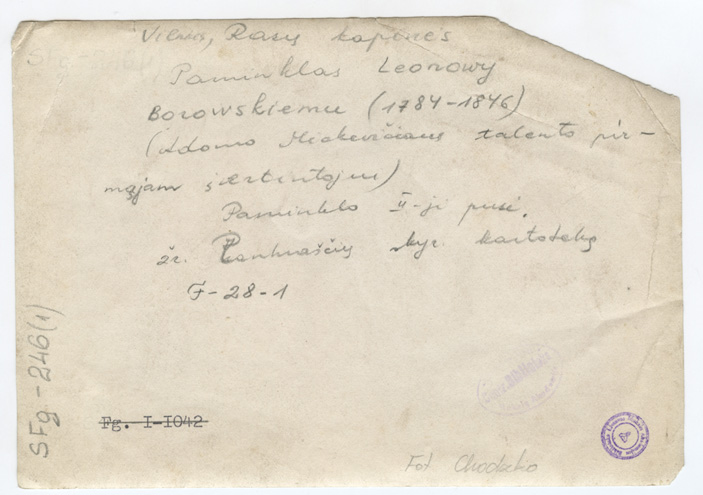 Vilnius, Rasų kapinės
Paminklas Leonowy
Borowskiemu (1784-1846)
(Adomo Mickevičiaus talento pir-
mąjam įvertintojui)
Paminklo II-ji pusė.
žr. Rankraščių skyr. kartoteką
F-28-1
SFg-246(1)
Fg. I-1042
Fot Chodzko